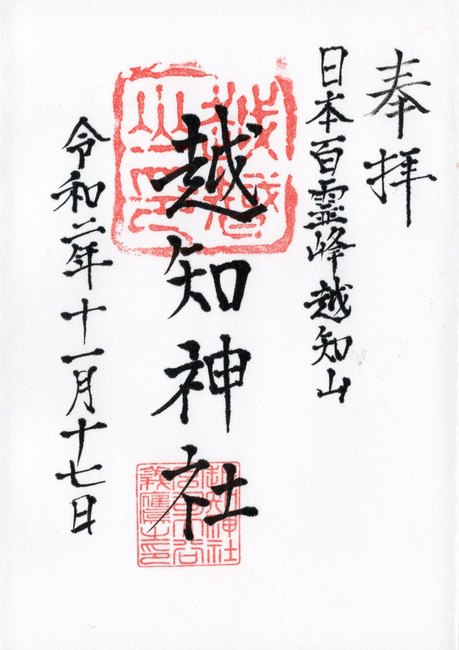 奉拝
日本百霊峰越知山
越知神社
令和二年十一月十七日